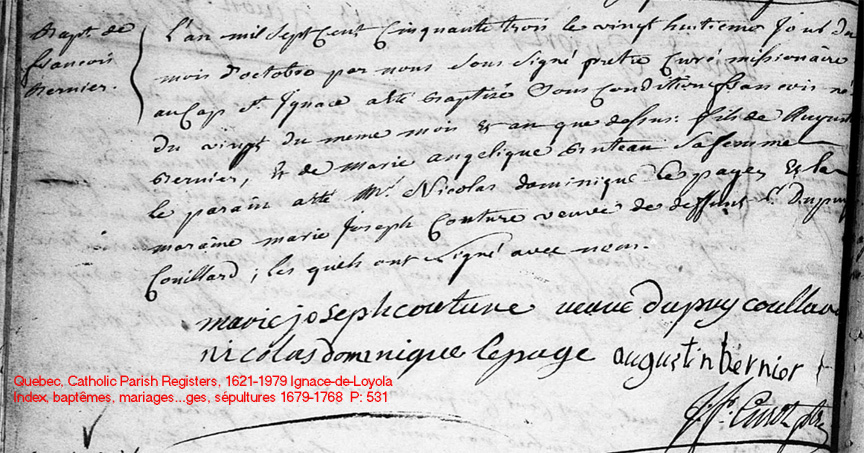 Bapt. de
francois
Bernier.
L'an mil sept Cent Cinquante trois le vingt huitieme Jour du
mois d'octobre par nous Sous Signé pretre Curé missionaire
au Cap St. Ignace a été Baptizé Sous Condition francois né
du vingt du meme mois & an que dessus: fils de August
Bernier, & de Marie angelique Sa femme
le parain a été Mr. Nicolas dominique le pagez & la
maraine marie Joseph Couture veuve de deffunt Dupuy
Couillard; les quels ont Signé avec nous.
marie joseph couture veuve dupuy coullar
nicolas dominique lepage augustin bernier
Quebec, Catholic Parish Registers, 1621-1979 Ignace-de-Loyola
Index, baptêmes, mariages...ges, sépultures 1679-1768 P: 531